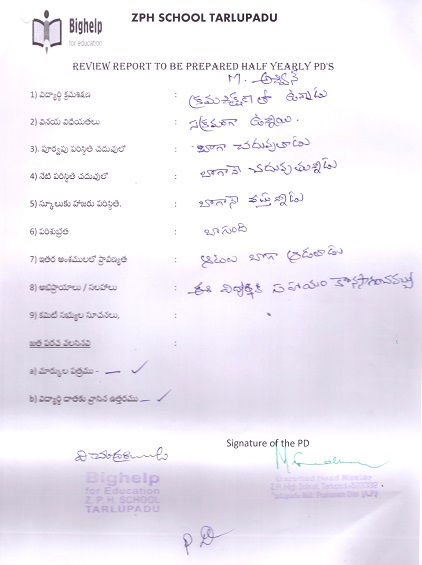 Bighelp
for education
ZPH SCHOOL TARLUPADU
REVIEW REPORT TO BE PREPARED HALF YEARLY PD'S
M. అశ్విన్
1) విద్యార్థి క్రమశిక్షణ : క్రమశిక్షణ తో ఉన్నాడు
2) వినయ విధేయతలు : సక్రమంగా ఉన్నాయి.
3). పూర్వపు పరిస్థితి చదువులో : బాగా చదువుతాడు
4) నేటి పరిస్థితి చదువులో : బాగానే చదువుతున్నాడు
5) స్కూలుకు హాజరు పరిస్థితి. : బాగానే వస్తున్నాడు
6) పరిశుభ్రత : బాగుంది
7) ఇతర అంశములలో ప్రావిణ్యత : ఆటలు బాగా ఆడతాడు
8) అభిప్రాయాలు / సలహాలు : ఈ విద్యార్థికి సహాయం కొనసాగించవచ్చు
9) కమిటి సభ్యుల సూచనలు, :
జత పరచ వలసినవి :
a) మార్కుల పత్రము - ✓
b) విద్యార్థి దాతకు వ్రాసిన ఉత్తరము - ✓
Signature of the PD
Bighelp
for Education
Z. P. H. SCHOOL
TARLUPADU
Head Master
PD